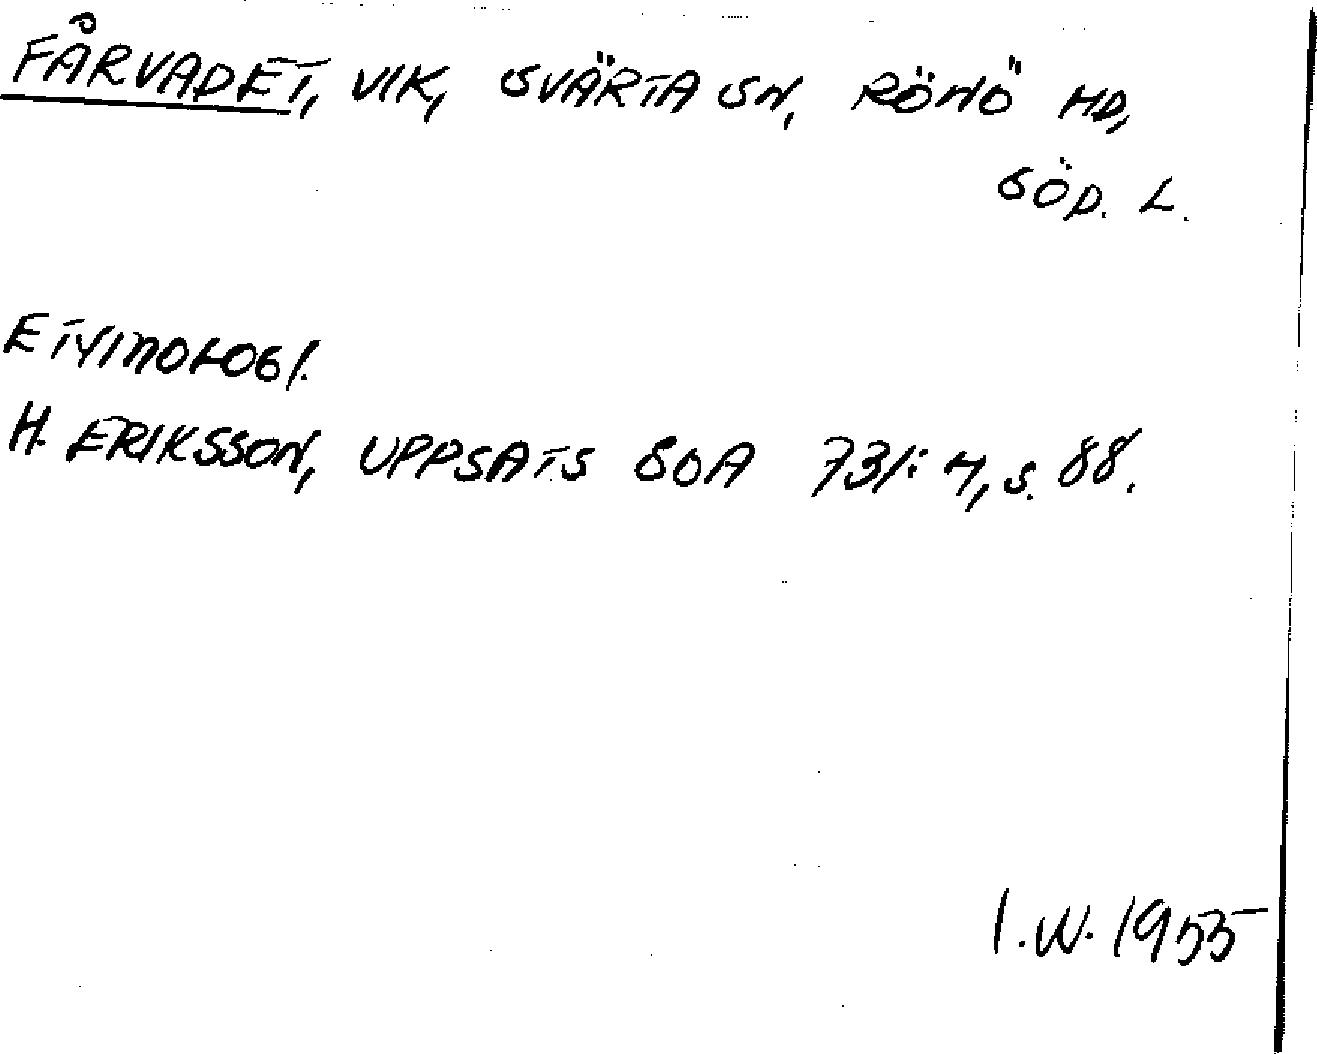 FÅRVADET, VIK, SVÄRTA SN, RÖNÖ HD,
SÖD. L.
ETYMOLOGI.
H. ERIKSSON, UPPSATS SOA 731:4, s. 88.
I.W. 1955